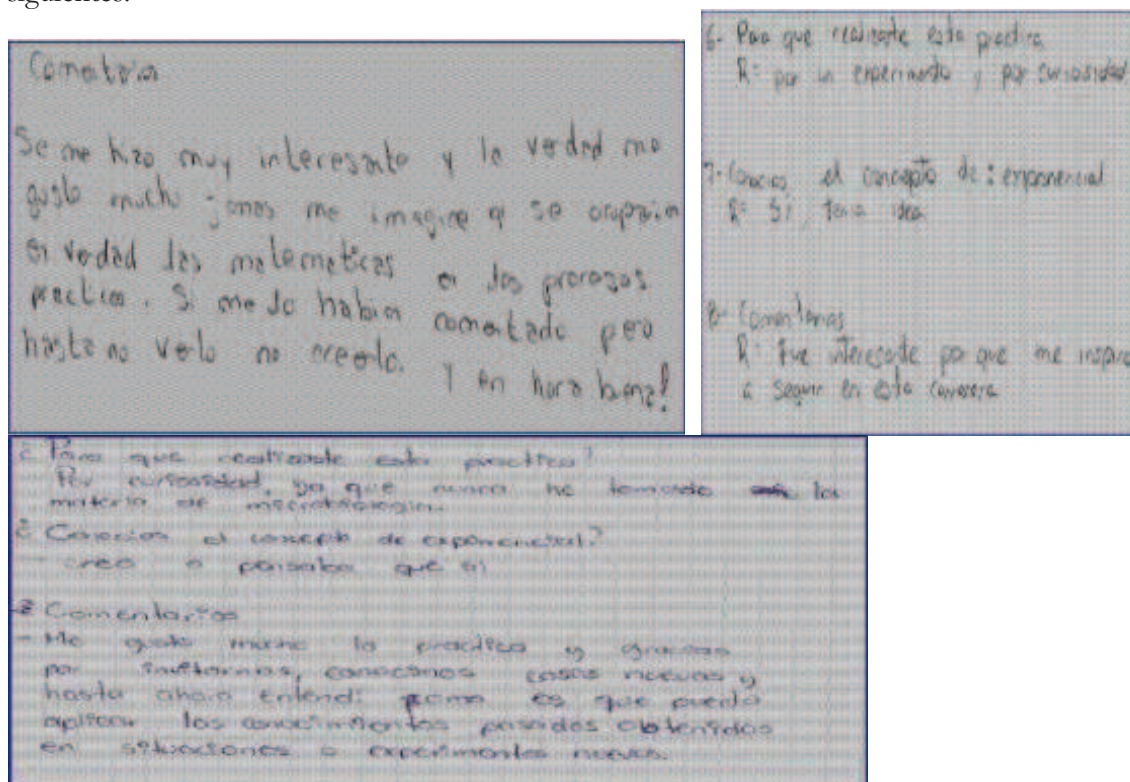 siguientes:
Comentarios
Se me hizo muy interesante y la verdad me
gusto mucho jamas me imagine q se ocuparian
en verdad las matematicas en los procesos
practicos. Si me lo habian comentado pero
hasta no verlo no creerlo. Y en hora buena!
6- Para que realizaste esta practica
R= por un experimento y por curiosidad
7- Conocias el concepto de : exponencial
R= Si, tenia idea
8- Comentarios
R= Fue interesante por que me inspira
a seguir en esta carrera
¿Para que realizaste esta practica?
Por curiosidad, ya que nunca he tomado la
materia de microbiologia.
¿Conocias el concepto de exponencial?
- creo o pensaba que si
Comentarios
- Me gusto mucho la practica y gracias
por invitarnos, conocimos cosas nuevas y
hasta ahora entendi como es que puedo
aplicar los conocimientos pasados obtenidos
en situaciones o experimentos nuevos.